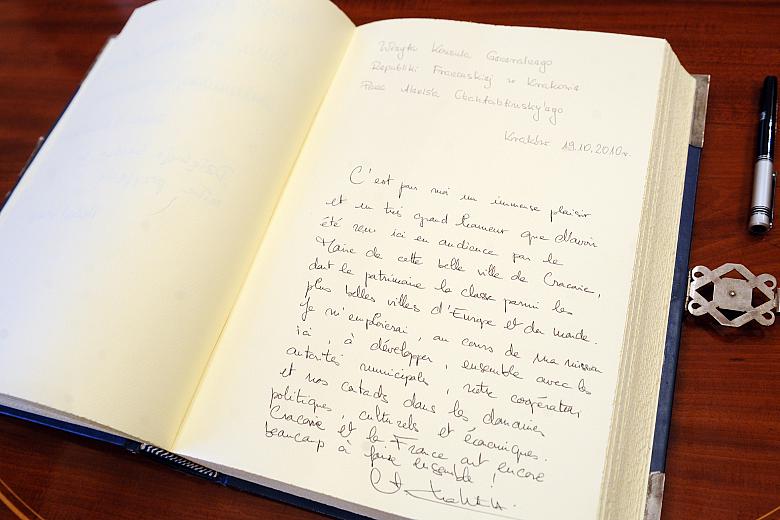 Wizyta Konsula Generalnego
Republiki Francuskiej w Krakowie
Pana
Kraków 19.10.2010r.
C'est pour moi un immense plaisir
et un très grand honneur que d'avoir
été reçu ici en audience par le
Maire de cette belle ville de Cracovie,
dont le patrimoine la classe parmi les
plus belles villes d'Europe et du monde.
Je m'emploierai, au cours de ma mission
ici, à développer, ensemble avec les
autorités municipales, notre coopération
et nos contacts dans les domaines
politiques, culturels et économiques.
Cracovie et la France ont encore
beaucoup à faire ensemble !